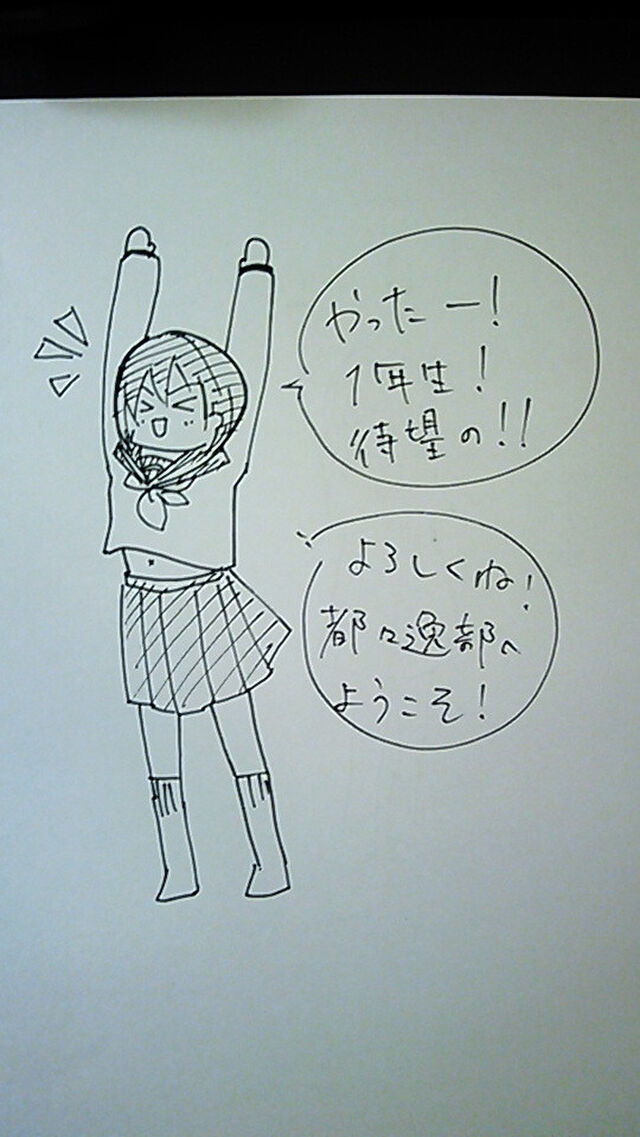 やったー！
1年生！
待望の！！
よろしくね！
都々逸部へ
ようこそ！